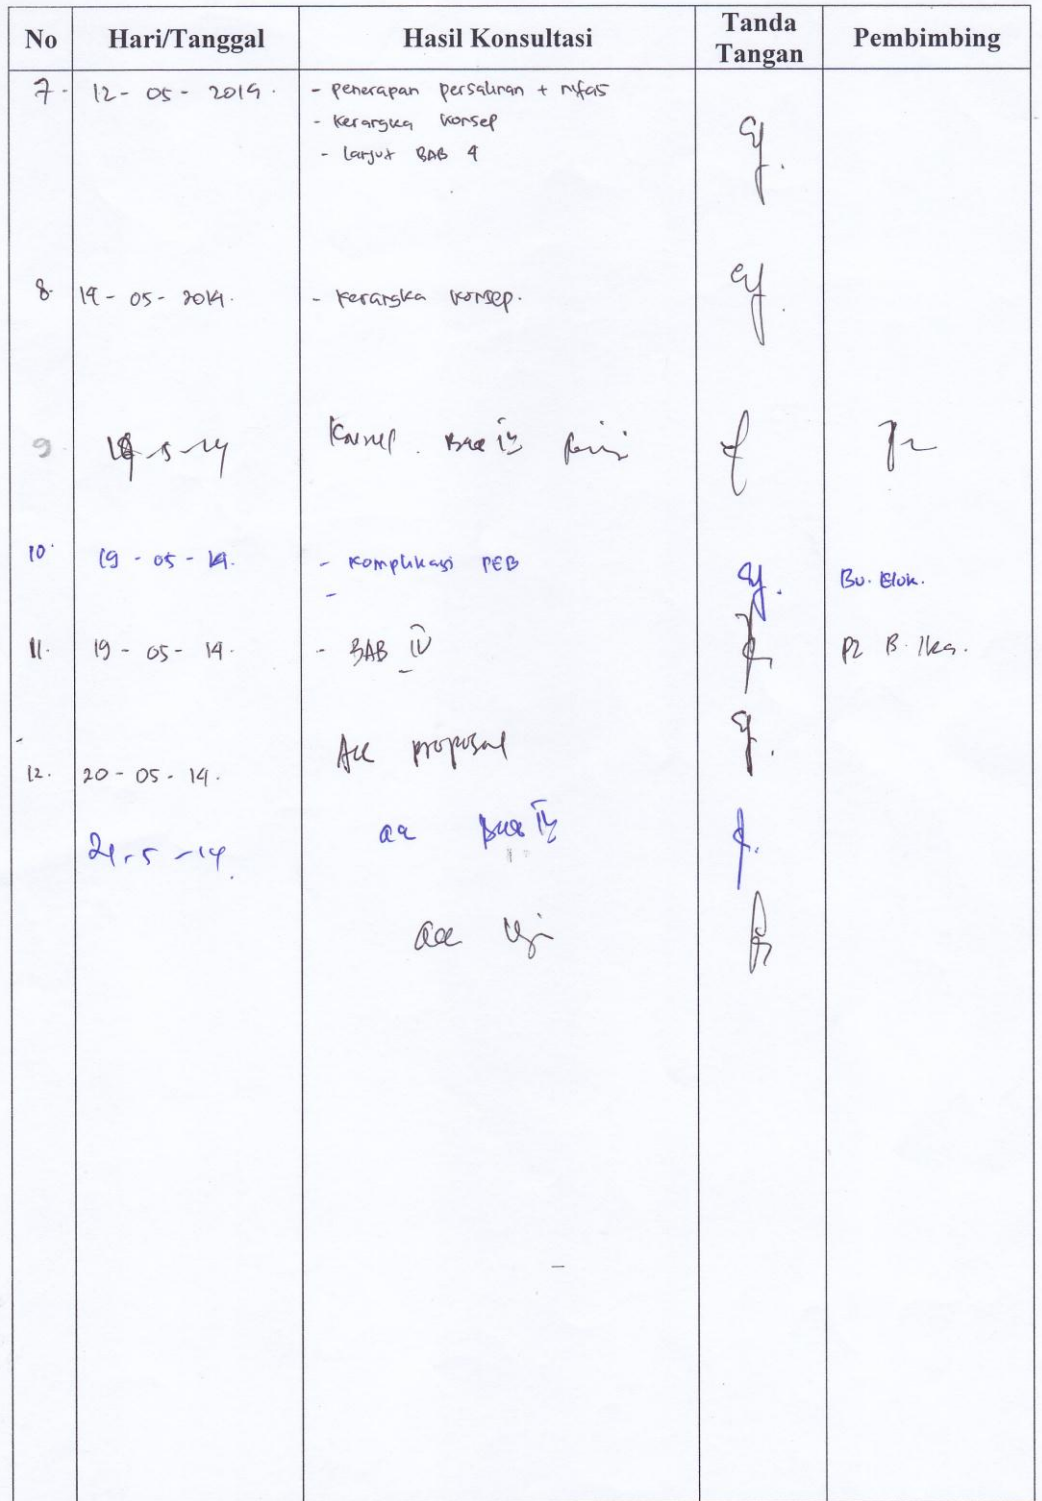 No Hari/Tanggal Hasil Konsultasi Tanda Tangan Pembimbing
7. 12-05-2014. - penerapan persalinan + nifas
- kerangka konsep
- lanjut BAB 4
8. 14-05-2014. - kerangka konsep.
9 P2
10. 19-05-14. - Komplikasi PEB Bu. Eluk.
-
11. 19-05-14. - BAB IV P2 B. Ika.
Acc proposal
12. 20-05-14.
21-5-14 acc Bab IV
acc Uji